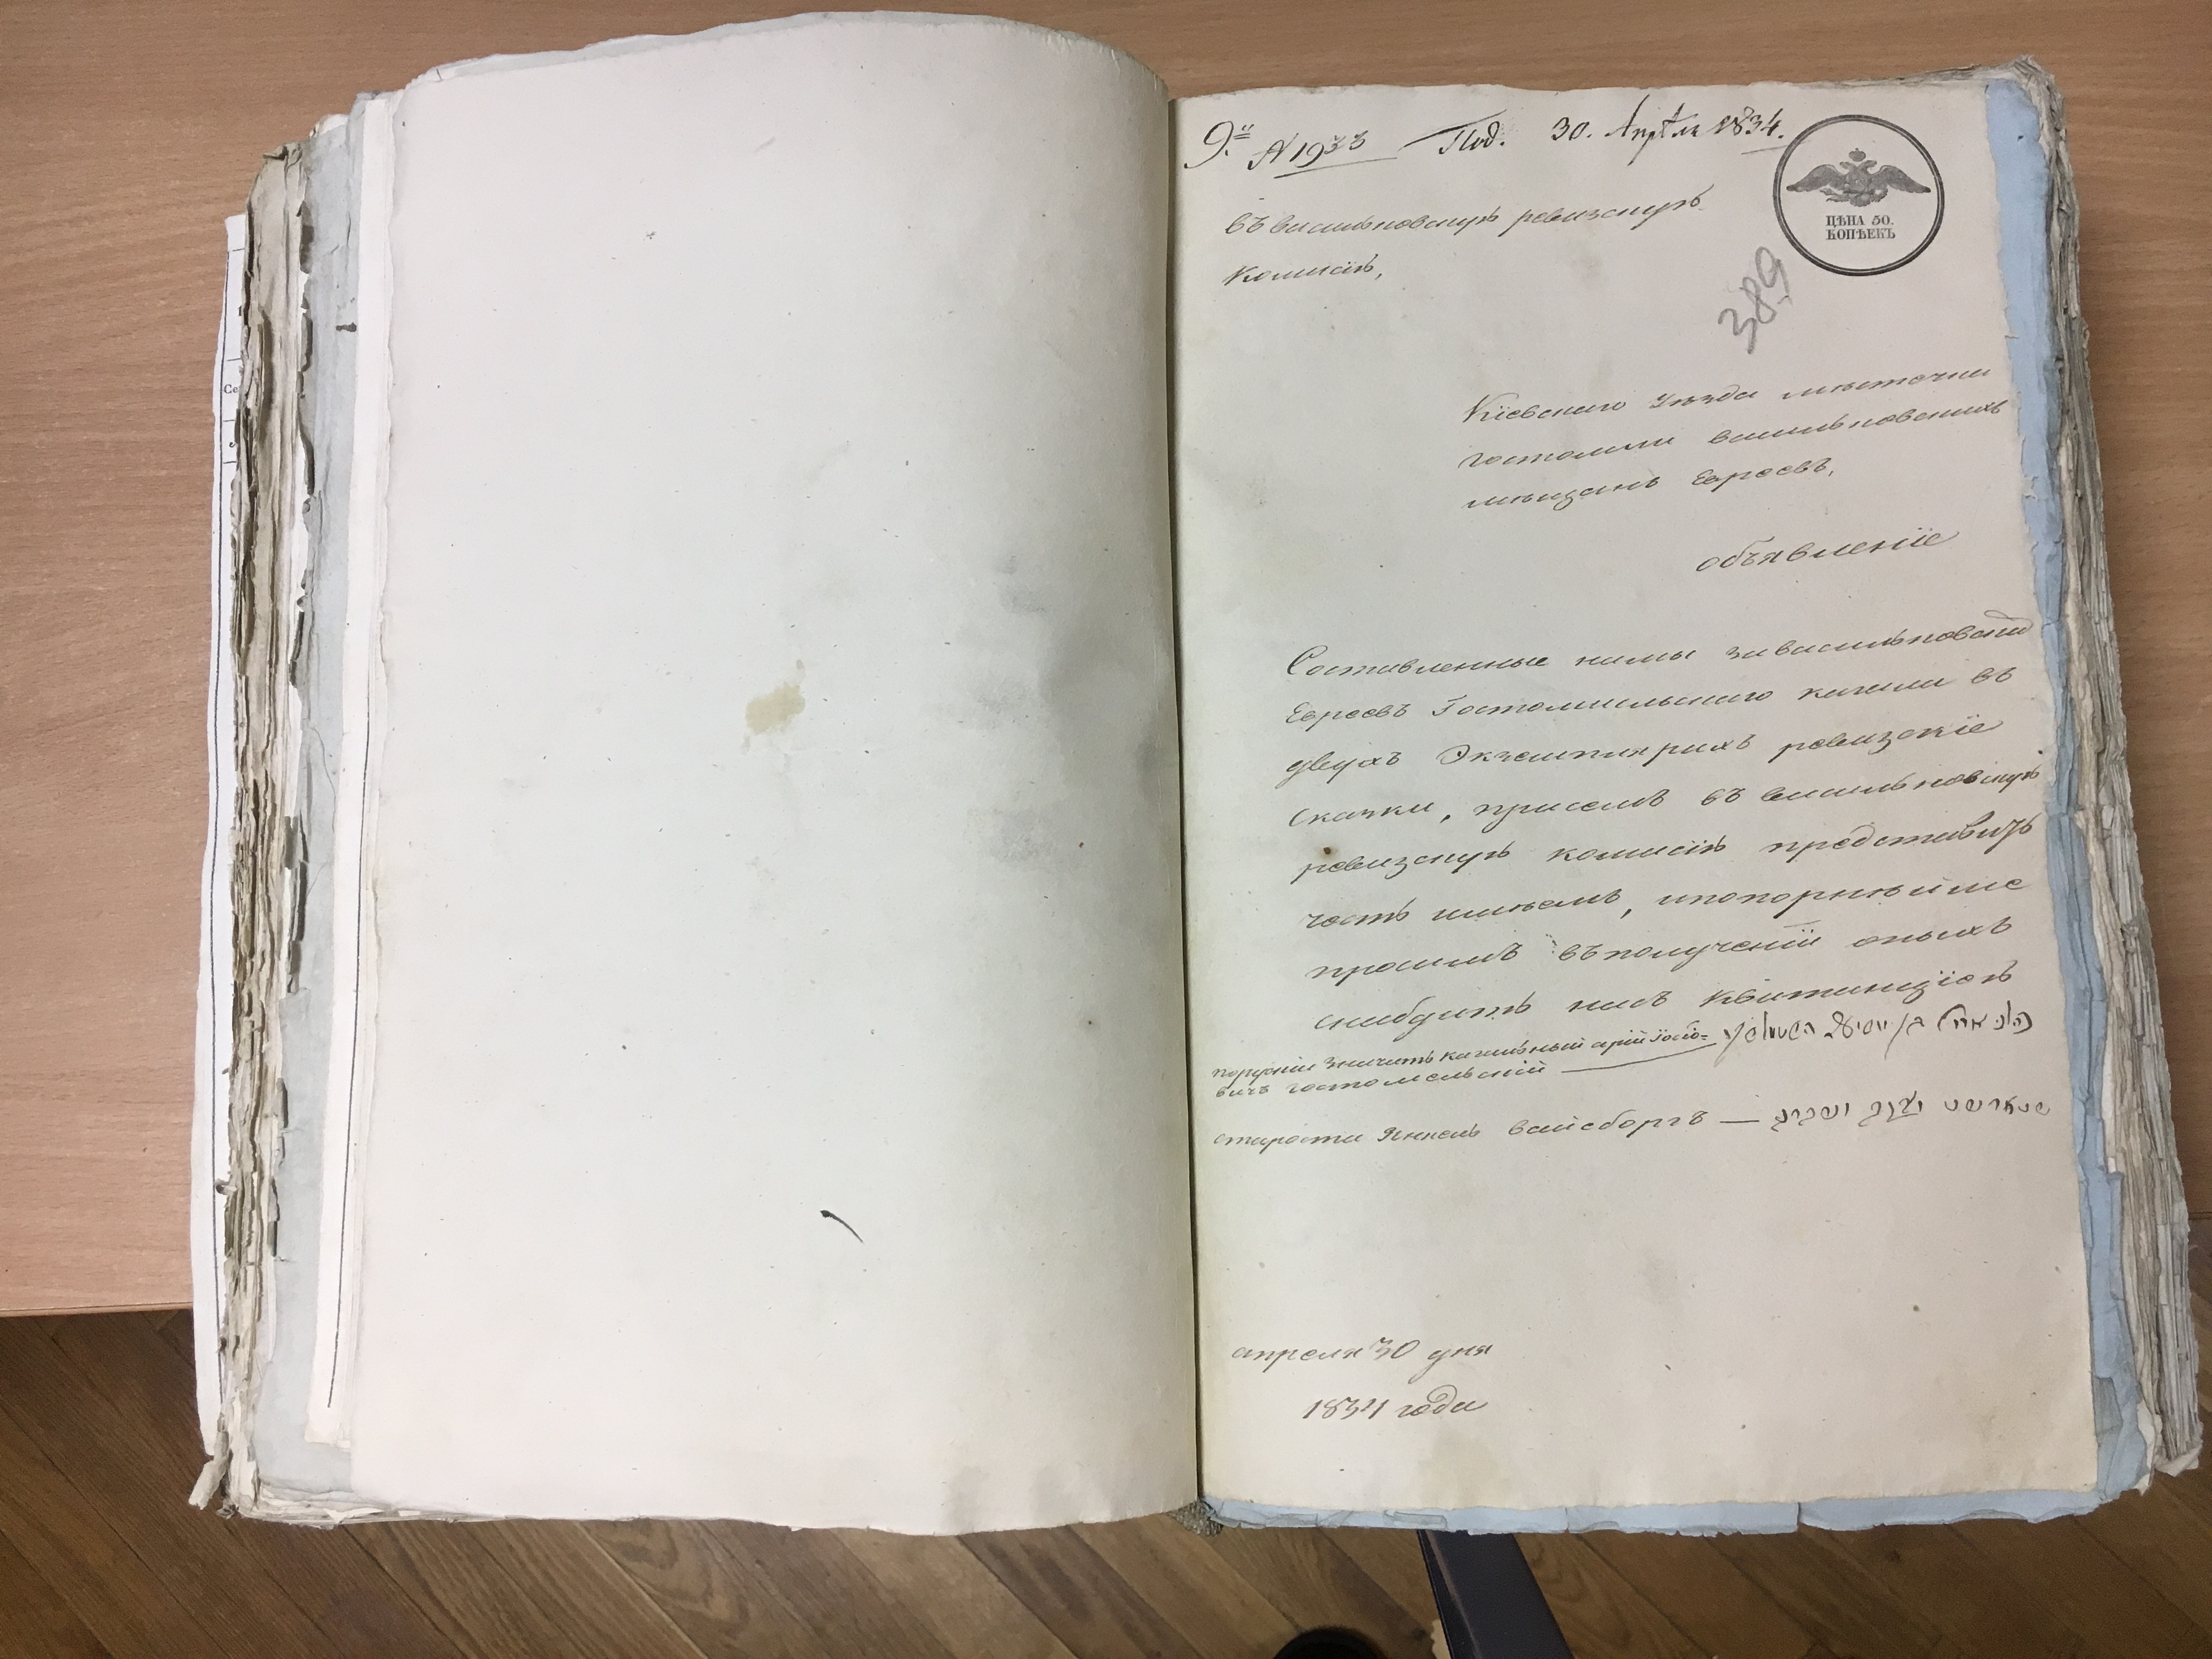 9. № 1933 Под. 30. Апрѣля 1834.
ЦѢНА 50.
КОПѢЕКЪ
въ васильковскую ревизскую
комисію,
389
Кіевскаго уѣзда мѣстечка
гостомли васильковскихъ
мѣщанъ Евреевъ,
объявленіе
Составленные нами за васильковски
Евреевъ Гостомльскаго кагала въ
двухъ Экземплярахъ ревизскіе
сказки, присемъ въ васильковскую
ревизскую комисію представить
честь имѣемъ, ипокорнѣйше
просимъ въполученіи оныхъ
снабдить насъ Квитанціею
порускіи значитъ кагальный арій Іосіо=
вичъ гостомельскій
староста Янкель вайсборгъ —
апреля 30 дня
1834 года
Со